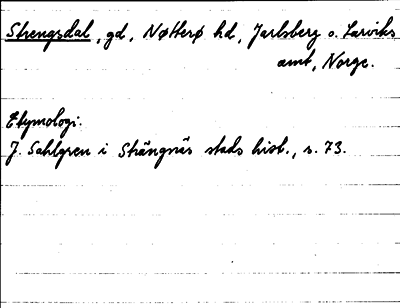 Strengsdal, gd, Nøtterø hd, Jarlsberg o. Larviks
amt, Norge.
Etymologi:
J. Sahlgren i Strängnäs stads hist., s. 73.